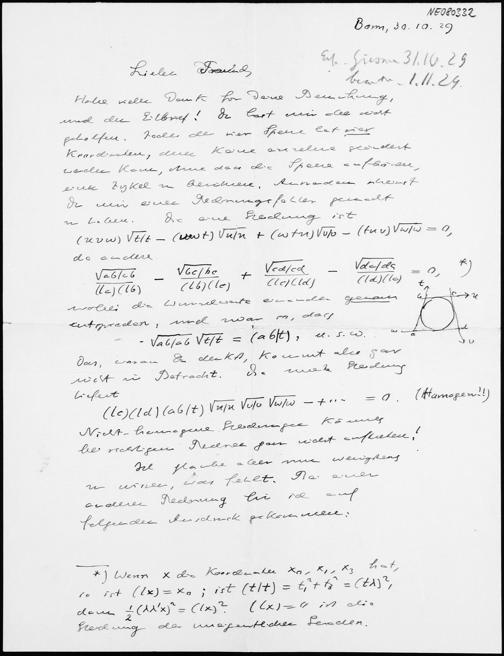 NE080332
Bonn, 30.10.29
31.10.29
1.11.29.
Lieber Freund,
Habe vielen Dank für Deine Bemühung,
und den Eilbrief! Du hast mir aber nicht
geholfen. Jeder der vier Speere hat vier
Koordinaten, deren keine einzelne geändert
werden kann, ohne dass die Speere aufhören,
einen Zykel zu berühren. Ausserdem scheinst
Du mir einen Rechnungsfehler gemacht
zu haben. Die eine Gleichung ist
(uvw) √t/t − (vwt) √u/u + (wtu) √v/v − (tuv) √w/w = 0,
die andere
√ab/ab / (la)(lb) − √bc/bc / (lb)(lc) + √cd/cd / (lc)(ld) − √da/da / (ld)(la) = 0, *)
wobei die Wurzelwerte einander genau
entsprechen, und zwar so, dass
- √ab/ab √t/t = (ab/t), u.s.w.
t, b c u a d w v
Das, woran Du denkst, kommt also gar
nicht in Betracht. Die zweite Gleichung
liefert
(lc)(ld)(ab/t) √u/u √v/v √w/w − + ... = 0. (Homogen!!)
Nicht-homogene Gleichungen können
bei richtigem Rechnen gar nicht auftreten!
Ich glaube aber nun wenigstens
zu wissen, was fehlt. Bei einer
anderen Rechnung bin ich auf
folgenden Ausdruck gekommen:
*) Wenn x die Koordinaten x₀, x₁, x₂ hat,
so ist (lx) = x₀; ist (t/t) = t₁² + t₂² = (tλ)²,
dann ½(λλ'x)² = (lx)². (lx) = 0 ist die
Gleichung der uneigentlichen Geraden.